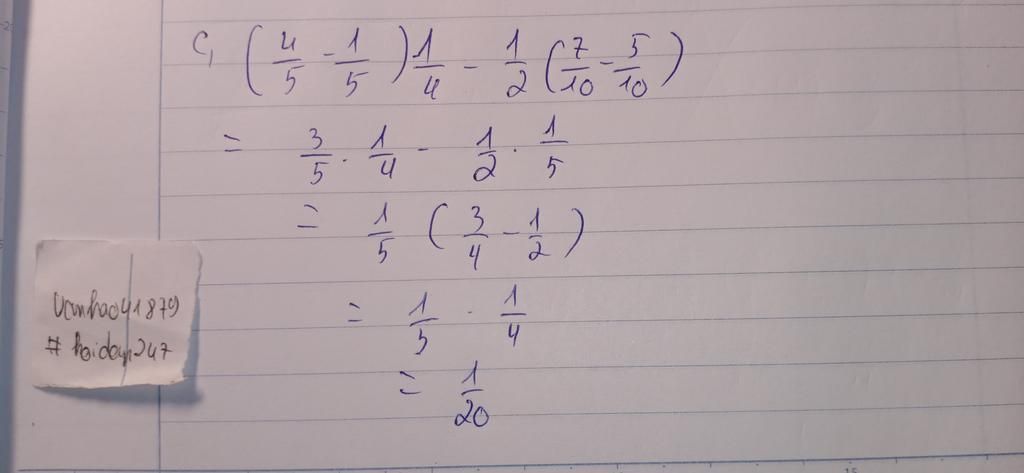 c, (4/5 - 1/5) 1/4 - 1/2 (7/10 - 5/10)
= 3/5 . 1/4 - 1/2 . 1/5
= 1/5 (3/4 - 1/2)
= 1/5 . 1/4
= 1/20
vanhao41879
# hoidap247
15